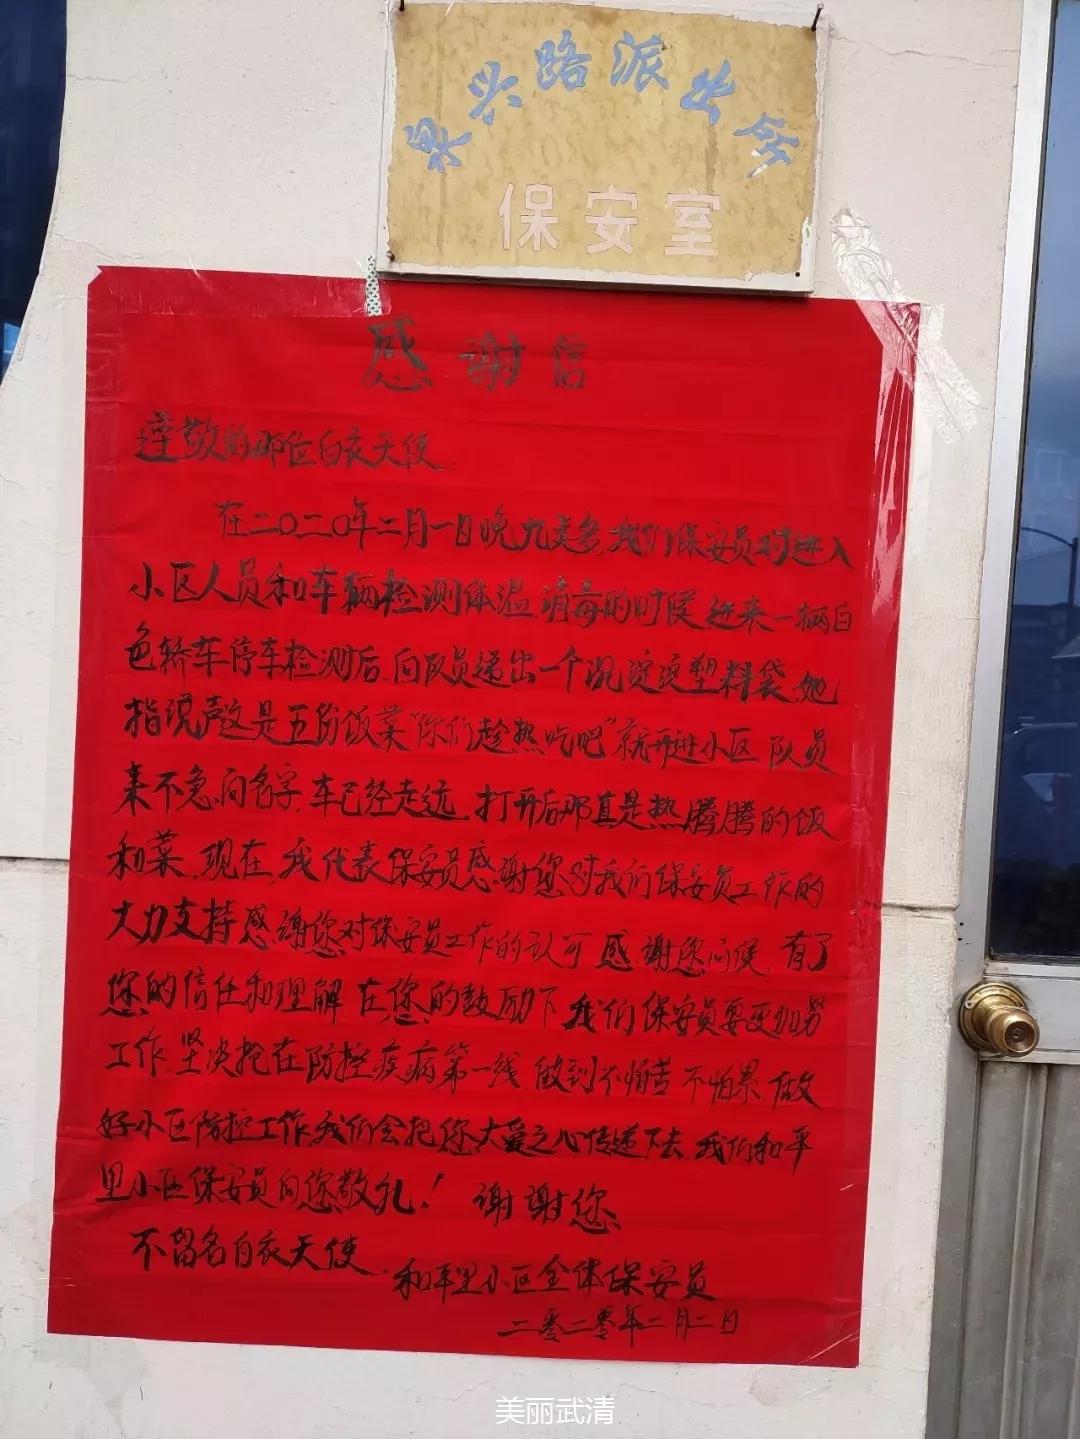 泉兴路派出所
保安室
感谢信
尊敬的那位白衣天使
在二〇二〇年二月一日晚九点多,我们保安员对进入
小区人员和车辆检测体温,消毒的时候进来一辆白
色轿车停车检测后,向队员递出一个沉淀淀塑料袋,她
指说声这是五份饭菜"你们趁热吃吧"就开进小区 队员
来不急问名字,车已经走远,打开后那真是热腾腾的饭
和菜,现在,我代表保安员感谢您对我们保安员工作的
大力支持感谢您对保安员工作的认可 感谢您问候,有了
您的信任和理解,在您的鼓励下 我们保安员要更加努
工作,坚决抢在防控疾病第一线,做到不怕苦 不怕累,做
好小区防控工作,我们会把您大爱之心传递下去,我们和平
里小区保安员向您敬礼! 谢谢您
不留名白衣天使.
和平里小区全体保安员
二零二零年二月二日
美丽武清